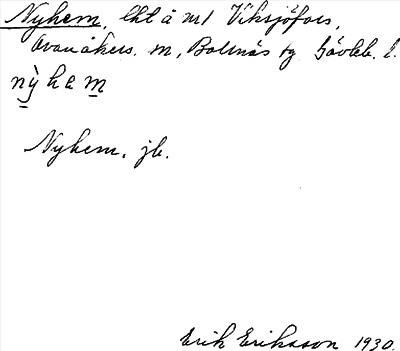 Nyhem, lht å nr 1 Viksjöfors,
Ovanåkers. sn, Bollnäs tg Gävleb. l.
nỳhem
Nyhem, jb.
Erik Eriksson 1930.